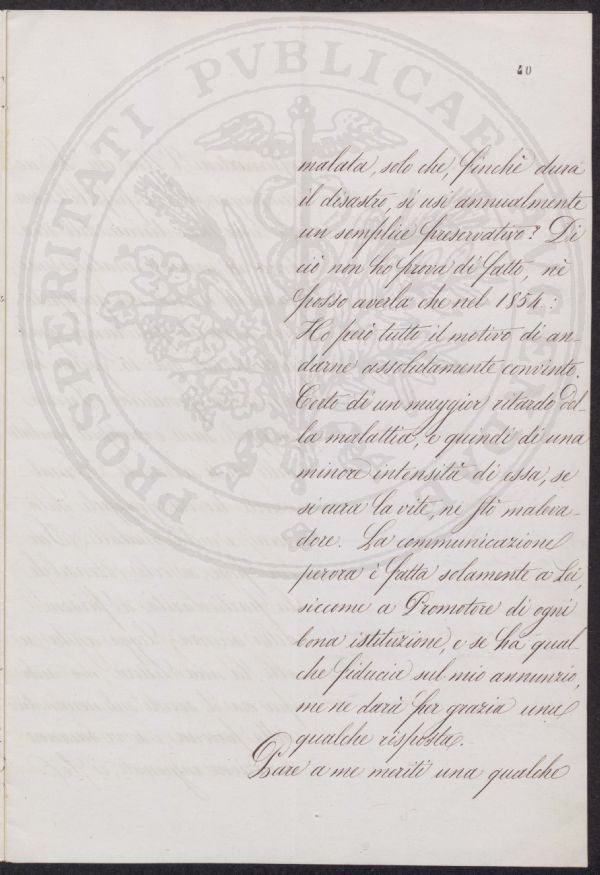 40
PROSPERITATI PVBLICAE
malata, solo che, finchè dura
il disastro, si usi annualmente
un semplice preservativo? Di
ciò non ho prova di fatto, nè
posso averla che nel 1854:
Ho però tutto il motivo di an-
darne assolutamente convinto.
Certo di un maggior ritardo del-
la malattia, e quindi di una
minore intensità di essa, se
si cura la vite, ne stò maleva-
dore. La communicazione
perora è fatta solamente a Lei,
siccome a Promotore di ogni
bona istituzione, e se ha qual-
che fiducia sul mio annunzio,
me ne darà per grazia una
qualche risposta.
Pare a me meriti una qualche